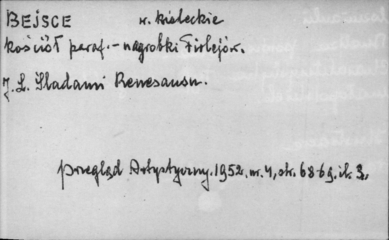 BEJSCE w. kieleckie
kościół paraf. - nagrobki Firlejów.
J. L. Śladami Renesansu.
Przegląd Artystyczny. 1952. nr. 4, str. 68-69. il. 3.